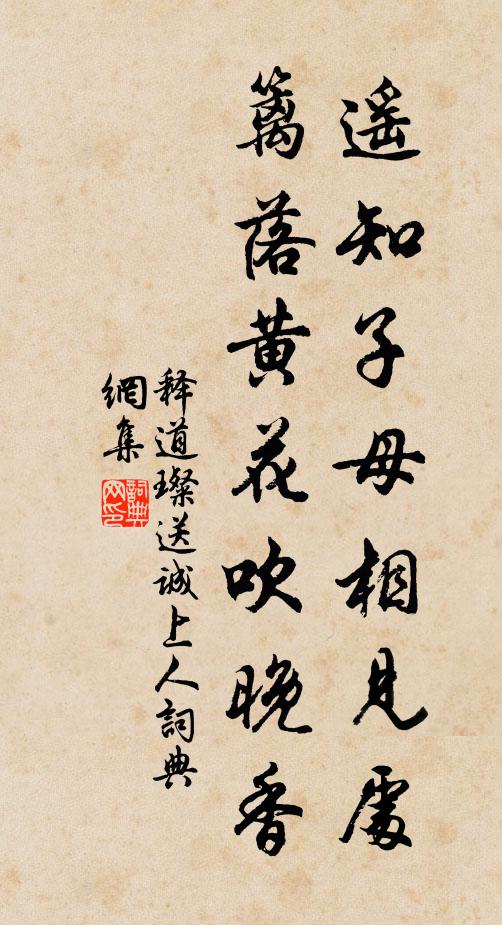 遥知子母相見處
籬落黄花吹晚香
释道璨送诚上人詞典
網集
詞典
网印